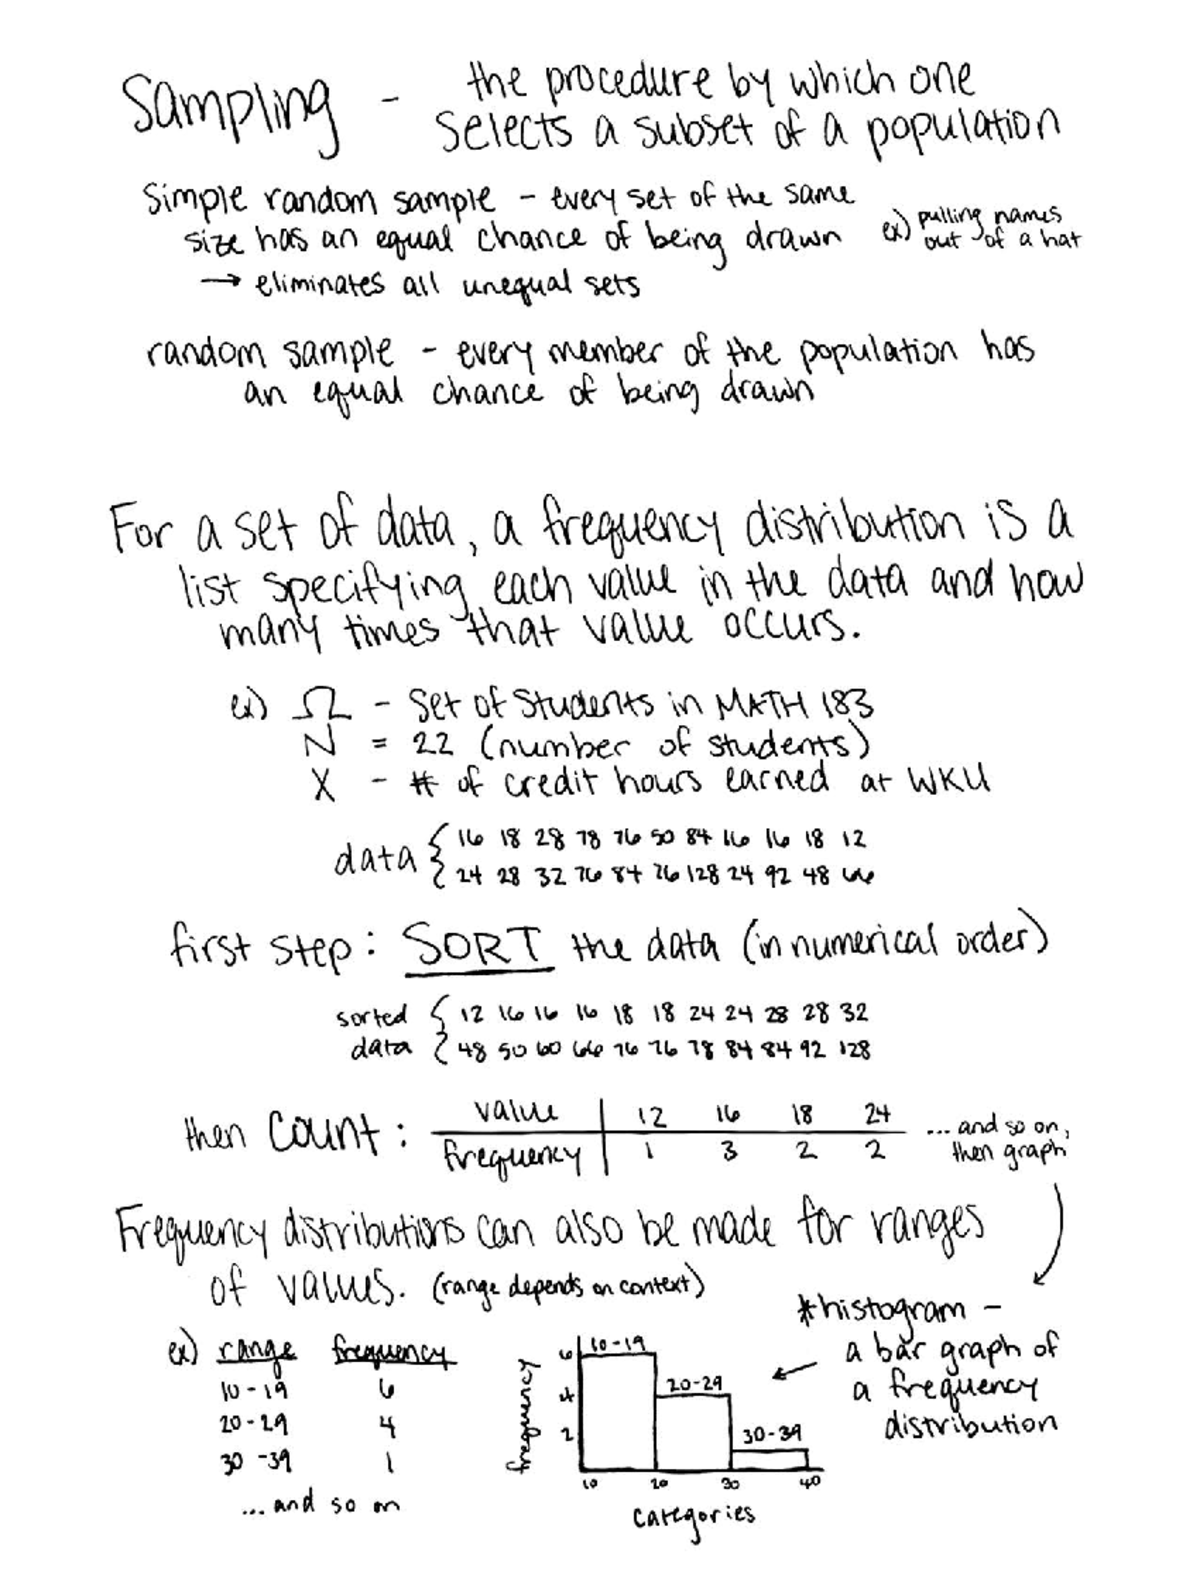 Sampling - the procedure by which one
selects a subset of a population
Simple random sample - every set of the same
size has an equal chance of being drawn
ex) pulling names
out of a hat
→ eliminates all unequal sets
random sample - every member of the population has
an equal chance of being drawn
For a set of data, a frequency distribution is a
list specifying each value in the data and how
many times that value occurs.
ex) Ω - Set of Students in MATH 183
N = 22 (number of students)
X - # of credit hours earned at WKU
data { 16 18 28 78 76 50 84 16 16 18 12
24 28 32 76 84 76 128 24 92 48 66
first step: SORT the data (in numerical order)
sorted data { 12 16 16 16 18 18 24 24 28 28 32
48 50 60 66 76 76 78 84 84 92 128
then count: value | 12 16 18 24
frequency | 1 3 2 2
... and so on,
then graph
Frequency distributions can also be made for ranges
of values. (range depends on context)
*histogram -
a bar graph of
a frequency
distribution
ex) range frequency
10-19 6
20-29 4
30-39 1
... and so on
frequency
6
4
2
10-19
20-29
30-39
10 20 30 40
categories